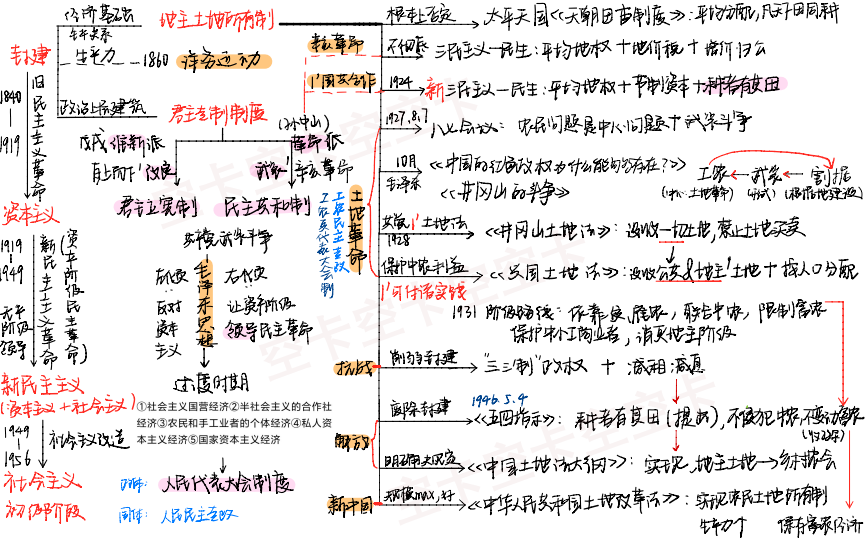 经济基础
地主土地所有制
生产关系
生产力
1860 洋务运动
封建
1840
1919
旧民主主义革命
政治上层建筑
君主专制制度
(孙中山)
戊戌维新派
革命派
自上而下"改良"
"武装"辛亥革命
君主立宪制
民主共和制
资本主义
1919
1949
无产阶级领导
新民主主义革命
(资产阶级民主革命)
毛泽东思想
反对资本主义
让资产阶级
领导民主革命
过渡时期
新民主主义
(资本主义+社会主义)
①社会主义国营经济②半社会主义的合作社
经济③农民和手工业者的个体经济④私人资
本主义经济⑤国家资本主义经济
1949
1956
社会主义改造
社会主义
初级阶段
政体:人民代表大会制度
国体:人民民主专政
太平天国《天朝田亩制度》:平均分配,凡天下田同耕
辛亥革命
不彻底
三民主义—民生:平均地权+地价税+增价归公
1'国共合作
1924
新三民主义—民生:平均地权+节制资本+耕者有其田
1927.8.7
八七会议:农民问题是中心问题+武装斗争
土地革命
工农民主专政
工农兵代表大会制
10月
毛泽东
《中国的红色政权为什么能够存在?》
《井冈山的斗争》
工农
武装
割据
1928
1'土地法
《井冈山土地法》:没收一切土地,禁止土地买卖
保护中农利益
《兴国土地法》:没收公共&地主'土地+按人口分配
1931 阶级路线:依靠贫、雇农,联合中农,限制富农
保护中小工商业者,消灭地主阶级
抗战
削弱封建
"三三制"政权 + 减租减息
解放
废除封建
1946.5.4
《五四指示》:耕者有其田(提出),不侵犯中农,不变动富农
《中国土地法大纲》:实现,地主土地→乡村农会
新中国
规模max,好
《中华人民共和国土地改革法》:实现农民土地所有制
生产力↑
保存富农经济